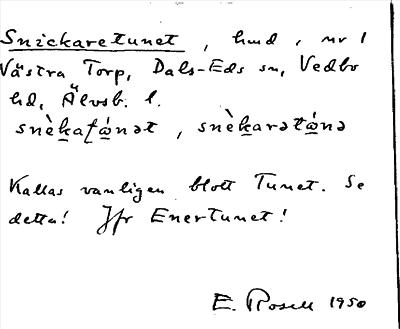 Snickaretunet, hmd, nr 1
Västra Torp, Dals-Eds sn, Vedbo
hd, Älvsb. l.
snèkatǫ́nət, snèkarətǫ́nə
Kallas vanligen blott Tunet. Se
detta! Jfr Enertunet!
E. Rosell 1950